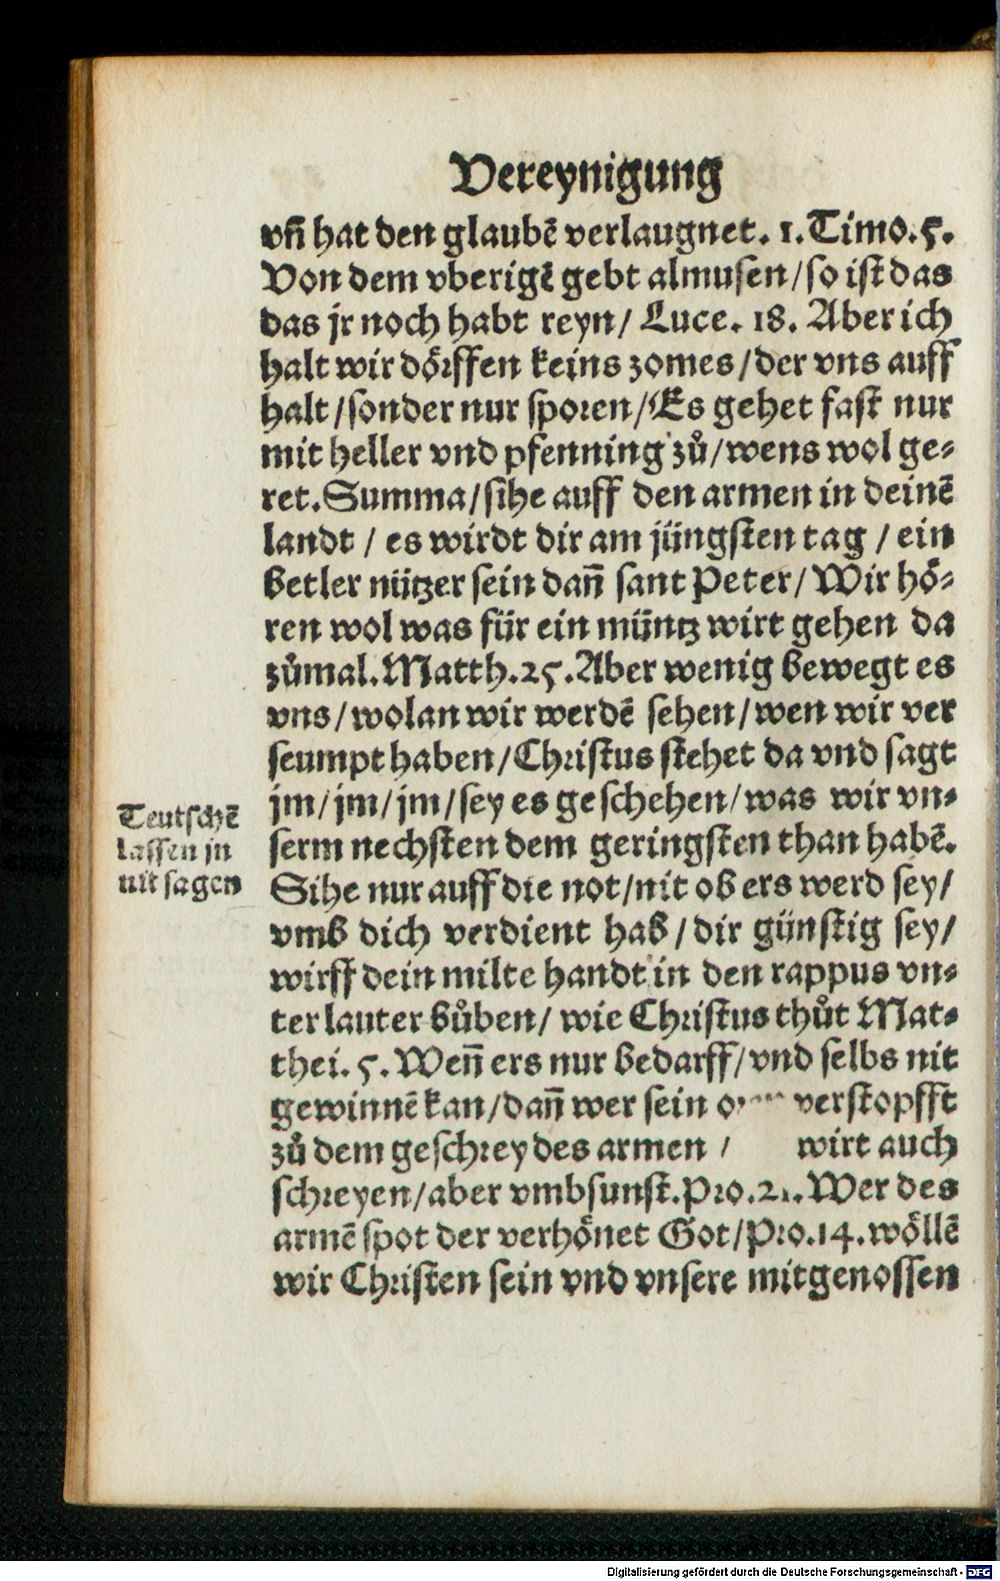 Vereynigung
vñ hat den glaubẽ verlaugnet. 1. Timo. 5.
Von dem vberigẽ gebt almusen/ so ist das
das jr noch habt reyn/ Luce. 18. Aber ich
halt wir dörffen keins zomes/ der vns auff
halt/ sonder nur sporen/ Es gehet fast nur
mit heller vnd pfenning zů/ wens wol ge-
ret. Summa/ sihe auff den armen in deinẽ
landt/ es wirdt dir am jüngsten tag/ ein
betler nützer sein dañ sant Peter/ Wir hö-
ren wol was für ein müntz wirt gehen da
zůmal. Matth. 25. Aber wenig bewegt es
vns/ wolan wir werdẽ sehen/ wen wir ver
seumpt haben/ Christus stehet da vnd sagt
jm/ jm/ jm/ sey es geschehen/ was wir vn-
serm nechsten dem geringsten than habẽ.
Teutschẽ
lassen jn
nit sagen
Sihe nur auff die not/ nit ob ers werd sey/
vmb dich verdient hab/ dir günstig sey/
wirff dein milte handt in den rappus vn-
ter lauter bůben/ wie Christus thůt Mat-
thei. 5. Weñ ers nur bedarff/ vnd selbs nit
gewinnẽ kan/ dañ wer sein verstopfft
zů dem geschrey des armen / wirt auch
schreyen/ aber vmbsunst. Pro. 21. Wer des
armẽ spot der verhönet Got/ Pro. 14. wöllẽ
wir Christen sein vnd vnsere mitgenossen
Digitalisierung gefördert durch die Deutsche Forschungsgemeinschaft - DFG